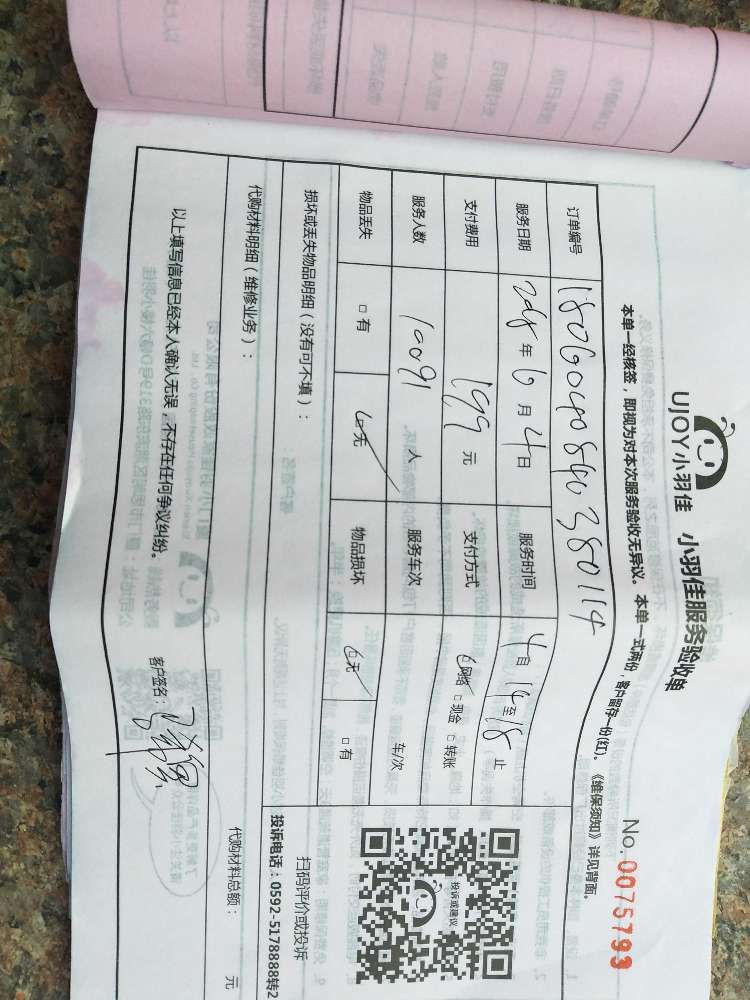 UJOY小羽佳 小羽佳服务验收单
No. 0075793
本单一经核签，即视为对本次服务验收无异议。本单一式两份，客户留存一份(红)。《维保须知》详见背面。
订单编号 1806040840380114
服务日期 2018年6月4日 服务时间 4日 14至18止
支付费用 199元 支付方式 网络 □现金 □转账
服务人数 10091人 服务车次 车/次
物品丢失 □有 □无 物品损坏 □无 □有
损坏或丢失物品明细（没有可不填）：
投诉或建议
扫码评价或投诉
投诉电话：0592-5178888转2
代购材料明细（维修业务）：
代购材料总额： 元
以上填写信息已经本人确认无误，不存在任何争议纠纷。
客户签名：